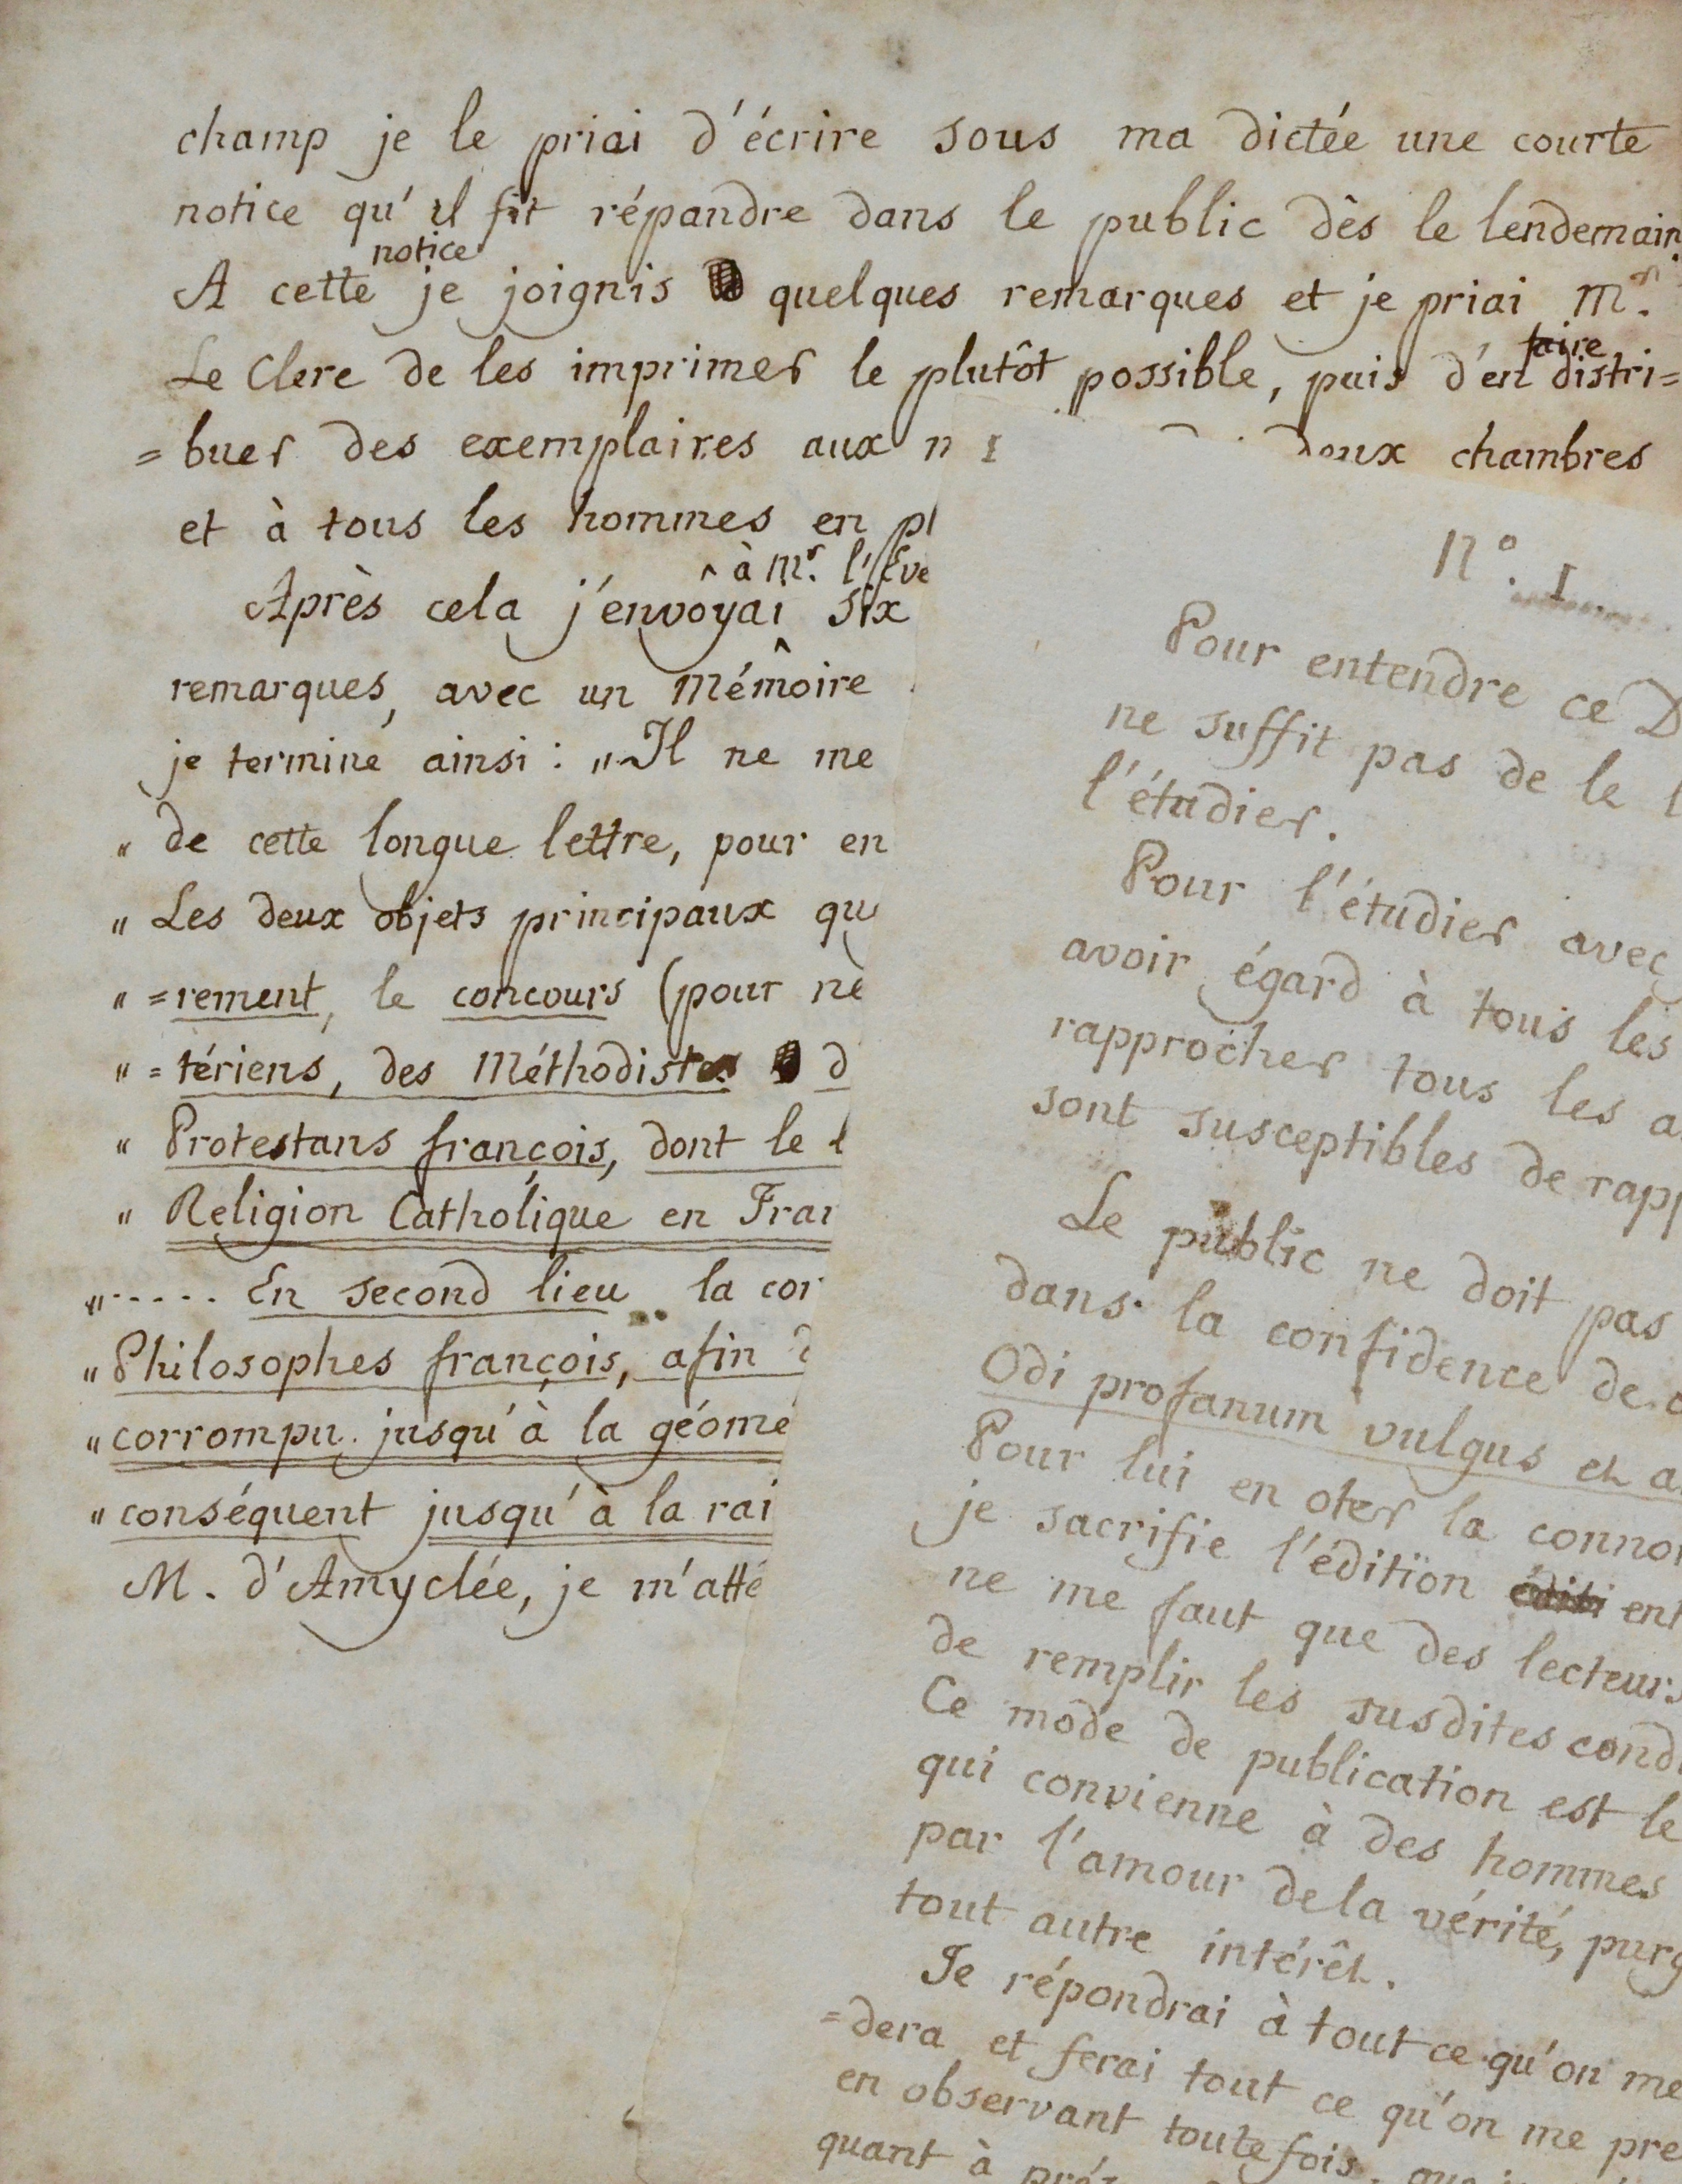 champ je le priai d'écrire sous ma dictée une courte
notice qu'il fit répandre dans le public dès le lendemain.
notice
A cette je joignis quelques remarques et je priai Mr.
faire
Le Clere de les imprimer le plutôt possible, puis d'en distri=
=buer des exemplaires aux deux chambres
et à tous les hommes en
à Mr. l'Eve
Après cela j'envoyai six
remarques, avec un Mémoire
je terminé ainsi : „Il ne me
„ de cette longue lettre, pour en
„ Les deux objets principaux
„ =rement, le concours (pour ne
„ =tériens, des Méthodistes
„ Protestans françois, dont le
„ Religion Catholique en
„ ..... En second lieu la
„ Philosophes françois, afin
„ corrompu jusqu'à la
„ conséquent jusqu'à la
M. d'Amyclée, je
N°. I
Pour entendre ce
ne suffit pas de le
l'étudier.
Pour l'étudier avec
avoir égard à tous les
rapprocher tous les
sont susceptibles de
Le public ne doit pas
dans la confidence de
Odi profanum vulgus et
Pour lui en oter la
je sacrifie l'édition
ne me faut que des lecteurs
de remplir les susdites
Ce mode de publication est le
qui convienne à des hommes
par l'amour de la vérité,
tout autre intérêt.
Je répondrai à tout ce qu'on me
=dera et ferai tout ce qu'on me
en observant toutefois
quant à